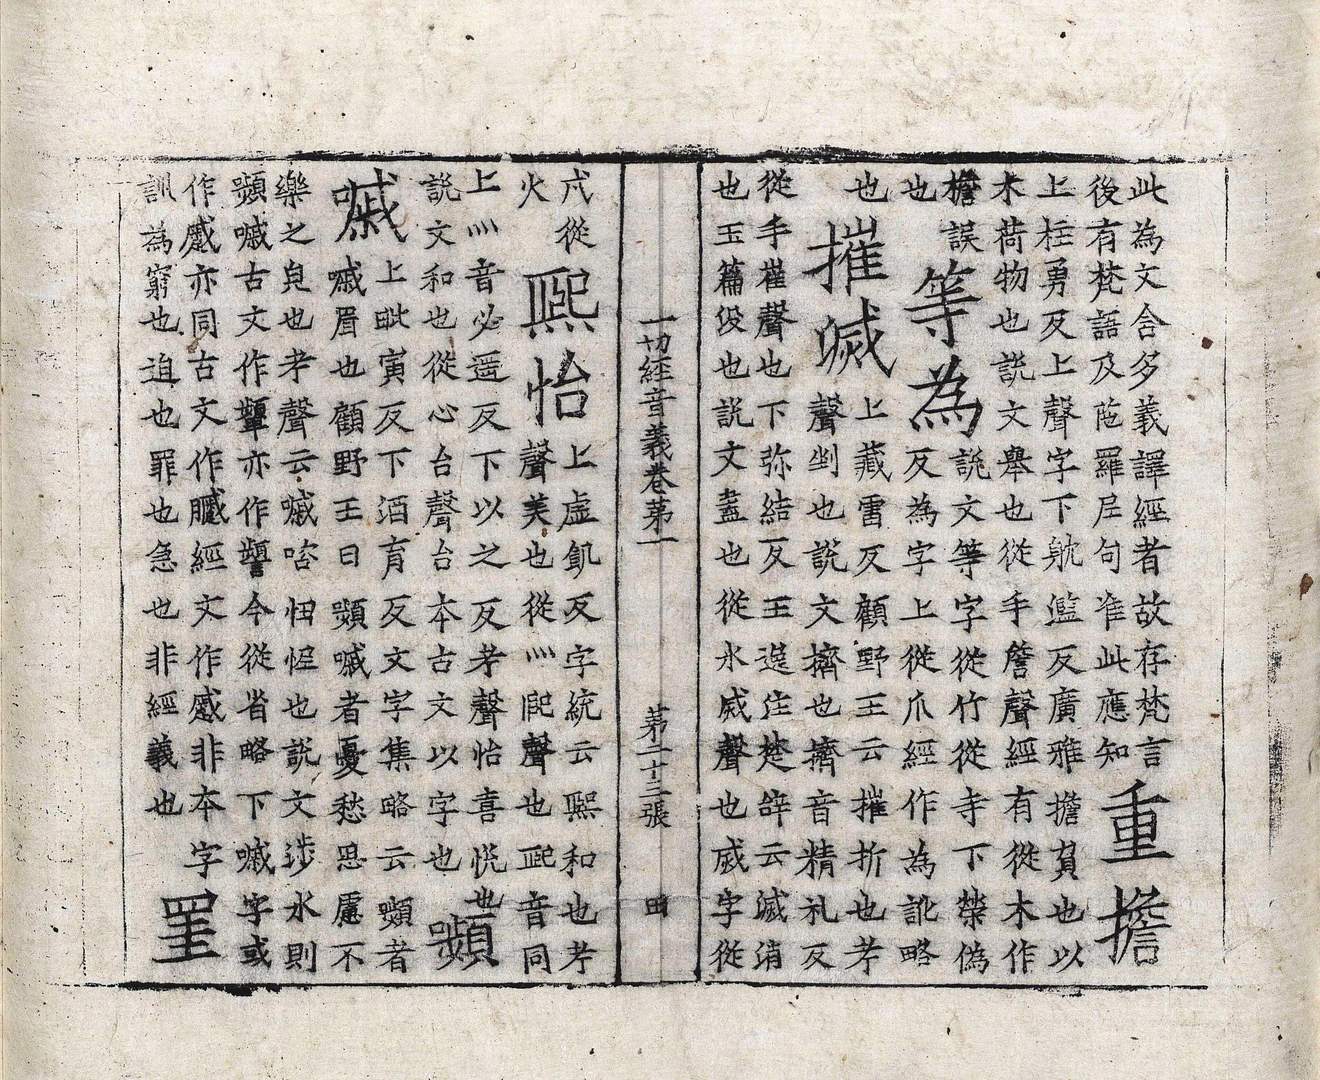 此為文含多義譯經者故存梵言
後有梵語及陁羅尼句准此應知
重擔
上柱勇反上聲字下躭濫反廣雅擔負也以
木荷物也說文舉也從手詹聲經有從木作
檐誤
也
等為
說文等字從竹從寺下榮偽
反為字上從爪經作為訛略
也
摧滅
上藏雷反顧野王云摧折也考
聲剉也說文擠也擠音精礼反
從手崔聲也下弥結反王逸注楚辞云滅消
也玉篇侵也說文盡也從水烕聲也烕字從
一切經音義卷第一 第二十三張 田
戌從
火
熙怡
上虛飢反字統云熙和也考
聲美也從灬巸聲也巸音同
上灬音必遥反下以之反考聲怡喜悅也
說文和也從心台聲台本古文以字也
嚬
嘁
上毗寅反下酒育反文字集略云嚬者
嘁眉也顧野王曰嚬嘁者憂愁思慮不
樂之皃也考聲云嘁咨忸怩也說文渉水則
嚬嘁古文作顰亦作今從省略下嘁字或
作慼亦同古文作經文作慼非本字
訓為窮也迫也罪也急也非經義也
罣